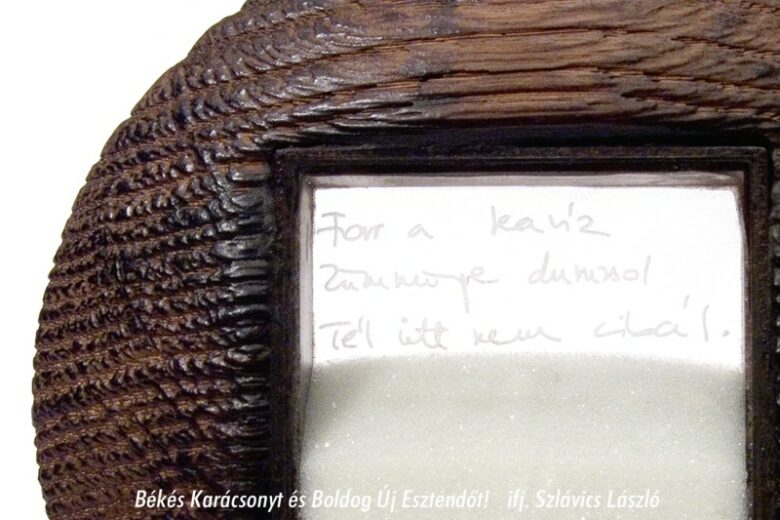 Forr a kávíz
Zümmögve dumasol
Tél itt nem cibál.
Békés Karácsonyt és Boldog Új Esztendőt! ifj. Szlávics László